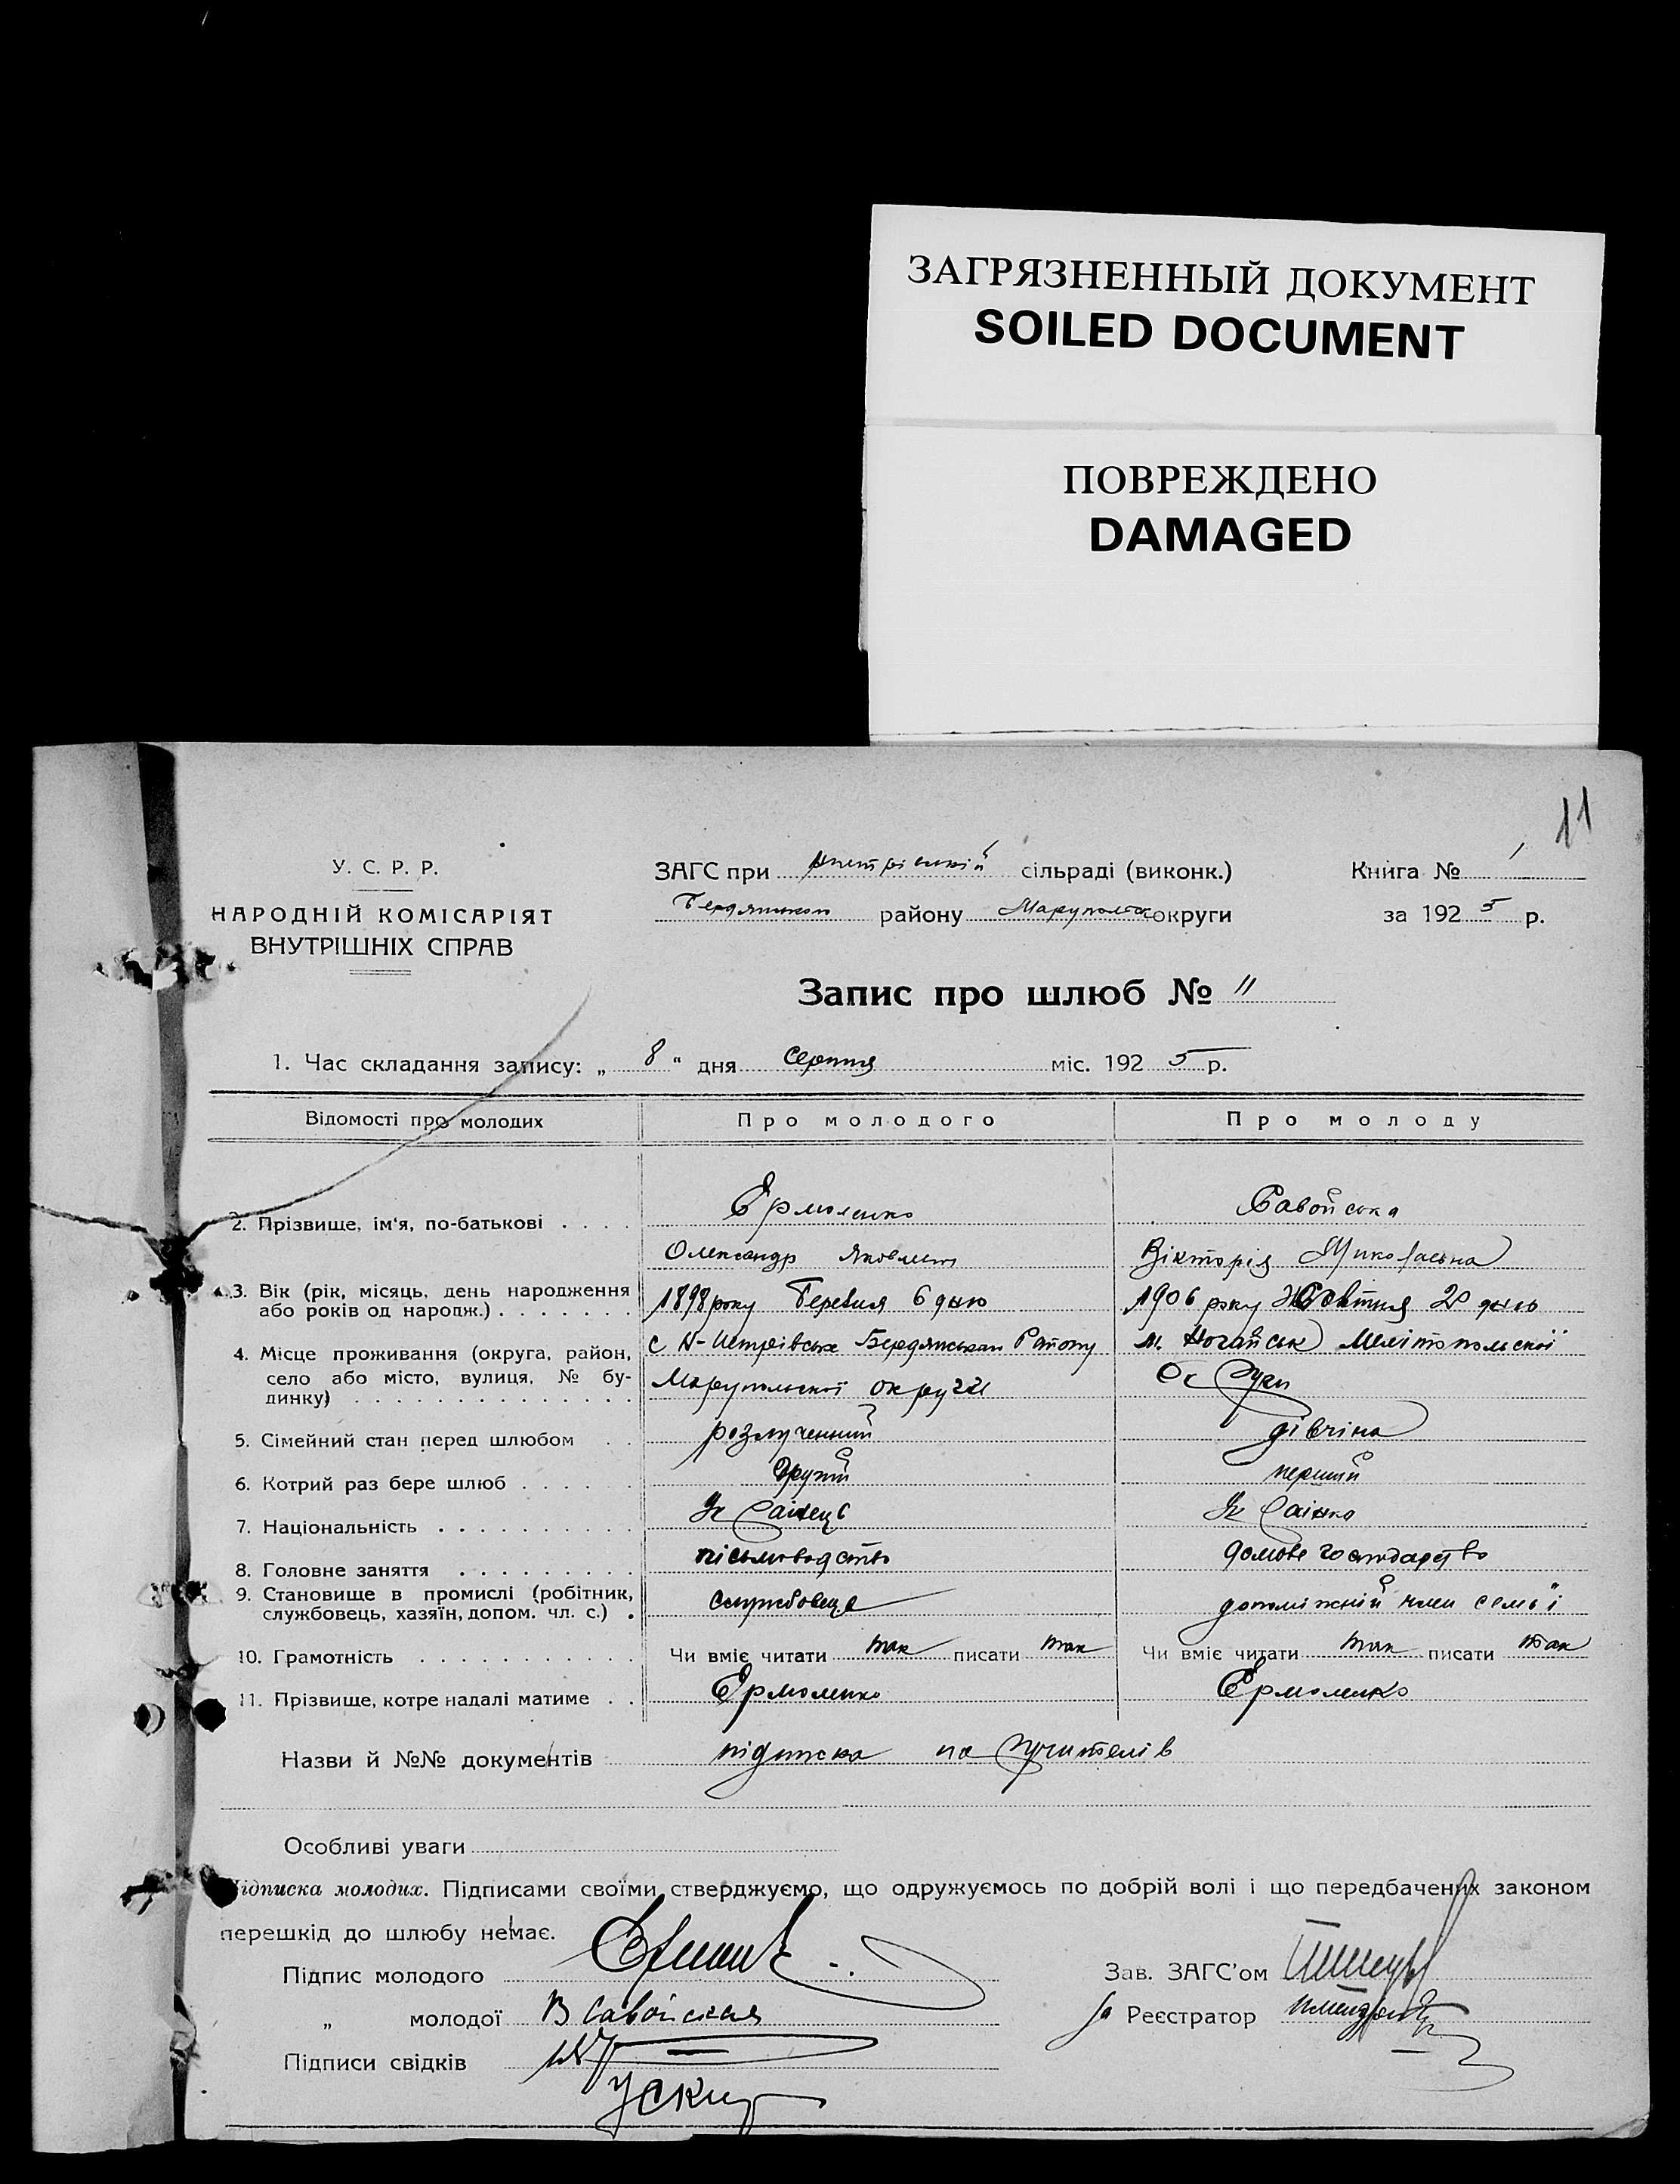 ЗАГРЯЗНЕННЫЙ ДОКУМЕНТ
SOILED DOCUMENT
ПОВРЕЖДЕНО
DAMAGED
11
У. С. Р. Р.
НАРОДНІЙ КОМІСАРІЯТ
ВНУТРІШНІХ СПРАВ
ЗАГС при сільраді (виконк.)
району округи
Книга № 1
за 1925 р.
Запис про шлюб № 11
1. Час складання запису: „ 8 “ дня серпня міс. 1925 р.
Відомості про молодих Про молодого Про молоду
2. Прізвище, ім‘я, по-батькові . . . . Єрмоленко Савойська
Олександр Яковлевич Вікторія Миколаєвна
3. Вік (рік, місяць, день народження або років од народж.) . . . . . . . 1898 року 6 дню 1906 року Жовтня 20 дню
4. Місце проживання (округа, район, село або місто, вулиця, № будинку) . . . . . . . . . . . . . . с Н-Петрівське Бердянського Району м. Ногайськ Мелітопольскої
Маруполької округи Округи
5. Сімейний стан перед шлюбом . . розлученний дівчіна
6. Котрий раз бере шлюб . . . . . другий перший
7. Національність . . . . . . . . . . Украінець Украінка
8. Головне заняття . . . . . . . . . письмоводство домове господарство
9. Становище в промислі (робітник, службовець, хазяїн, допом. чл. с.) . службовець допоміжний член семьї
10. Грамотність . . . . . . . . . . . Чи вміє читати так писати так Чи вміє читати так писати так
11. Прізвище, котре надалі матиме . . Єрмоленко Єрмоленко
Назви й №№ документів підписка поручителів
Особливі уваги
Підписка молодих. Підписами своїми стверджуємо, що одружуємось по добрій волі і що передбачених законом
перешкід до шлюбу немає.
Підпис молодого
„ молодої В Савойская
Підписи свідків
Зав. ЗАГС’ом
Реєстратор